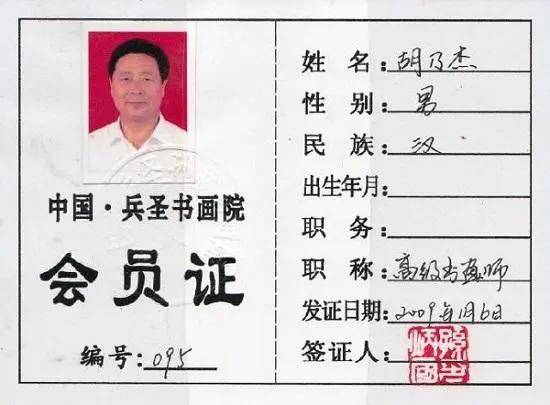 中国·兵圣书画院
会员证
编号:095
姓名:胡乃杰
性别:男
民族:汉
出生年月:
职务:
职称:高级书画师
发证日期:2009年1月6日
签证人: